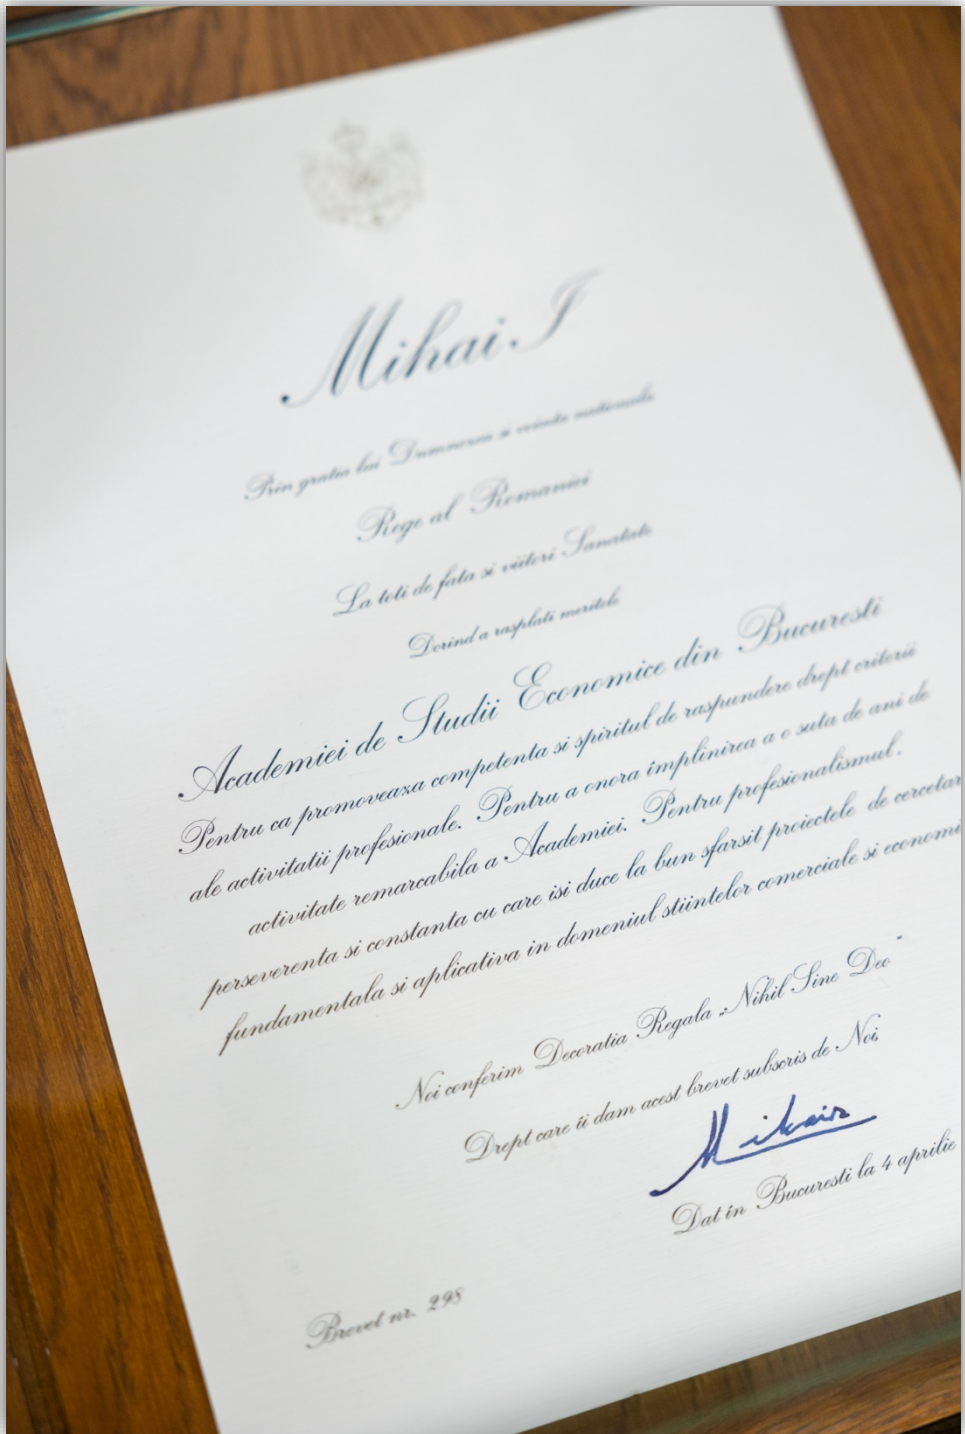 Mihai I
Prin gratia lui Dumnezeu si vointa nationala
Rege al Romaniei
La toti de fata si viitori Sanatate
Dorind a rasplati meritele
Academiei de Studii Economice din Bucuresti
Pentru ca promoveaza competenta si spiritul de raspundere drept criterii
ale activitatii profesionale. Pentru a onora împlinirea a o suta de ani de
activitate remarcabila a Academiei. Pentru profesionalismul.
perseverenta si constanta cu care isi duce la bun sfarsit proiectele de cercetar
fundamentala si aplicativa in domeniul stiintelor comerciale si economi
Noi conferim Decoratia Regala „Nihil Sine Deo"
Drept care îi dam acest brevet subscris de Noi,
Mihai R
Dat în Bucuresti la 4 aprilie
Brevet nr. 298